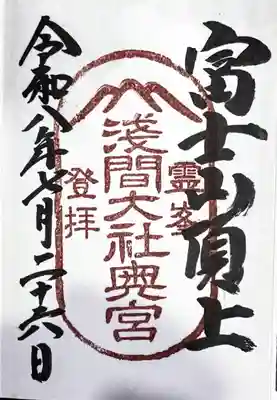 富士山頂上
霊峯
淺間大社奥宮
登拝
令和八年七月二十六日